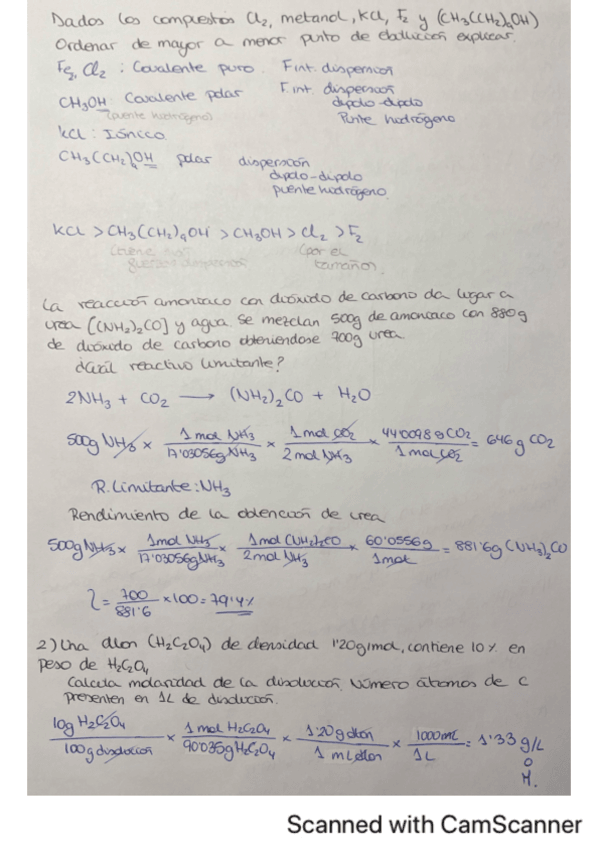 Dados los compuestos Cl₂, metanol, KCl, F₂ y (CH3(CH2)4OH)
Ordenar de mayor a menor punto de explicar.
F₂, Cl₂ : Covalente puro. F int. dispersión
CH3OH Covalente polar F. int. dispersión
(puente hidrógeno) dipolo-dipolo
Punte hidrógeno
KCl : Iónico
CH3(CH2)4OH polar dispersión
dipolo-dipolo
puente hidrógeno.
KCl > CH3(CH2)4OH > CH3OH > Cl2 > F2
(tiene más (por el
fuerzas dispersión tamaños).
La reacción amoniaco con dióxido de carbono da lugar a
urea [(NH2)2CO] y agua. Se mezclan 500g de amoniaco con 880g
de dióxido de carbono obteniendose 700g urea
¿Cuál reactivo limitante?
2NH3 + CO2 → (NH2)2CO + H2O
500g NH3 × 1 mol NH3 / 17'03056g NH3 × 1 mol CO2 / 2 mol NH3 × 44'0098 g CO2 / 1 mol CO2 = 646 g CO2
R. Limitante : NH3
Rendimiento de la obtención de urea
500g NH3 × 1 mol NH3 / 17'03056g NH3 × 1 mol (NH2)2CO / 2 mol NH3 × 60'0556g / 1 mol = 881'6g (NH2)2CO
η = 700 / 881'6 × 100 = 79'4%
2) Una dlon (H2C2O4) de densidad 1'20g/mol, contiene 10% en
peso de H2C2O4
Calcula molaridad de la disolución. Número átomos de C
presenten en 1L de disolución.
10g H2C2O4 / 100g disolución × 1 mol H2C2O4 / 90'035g H2C2O4 × 1'20 g dlon / 1 mL dlon × 1000mL / 1L = 1'33 g/L
o
M.
Scanned with CamScanner